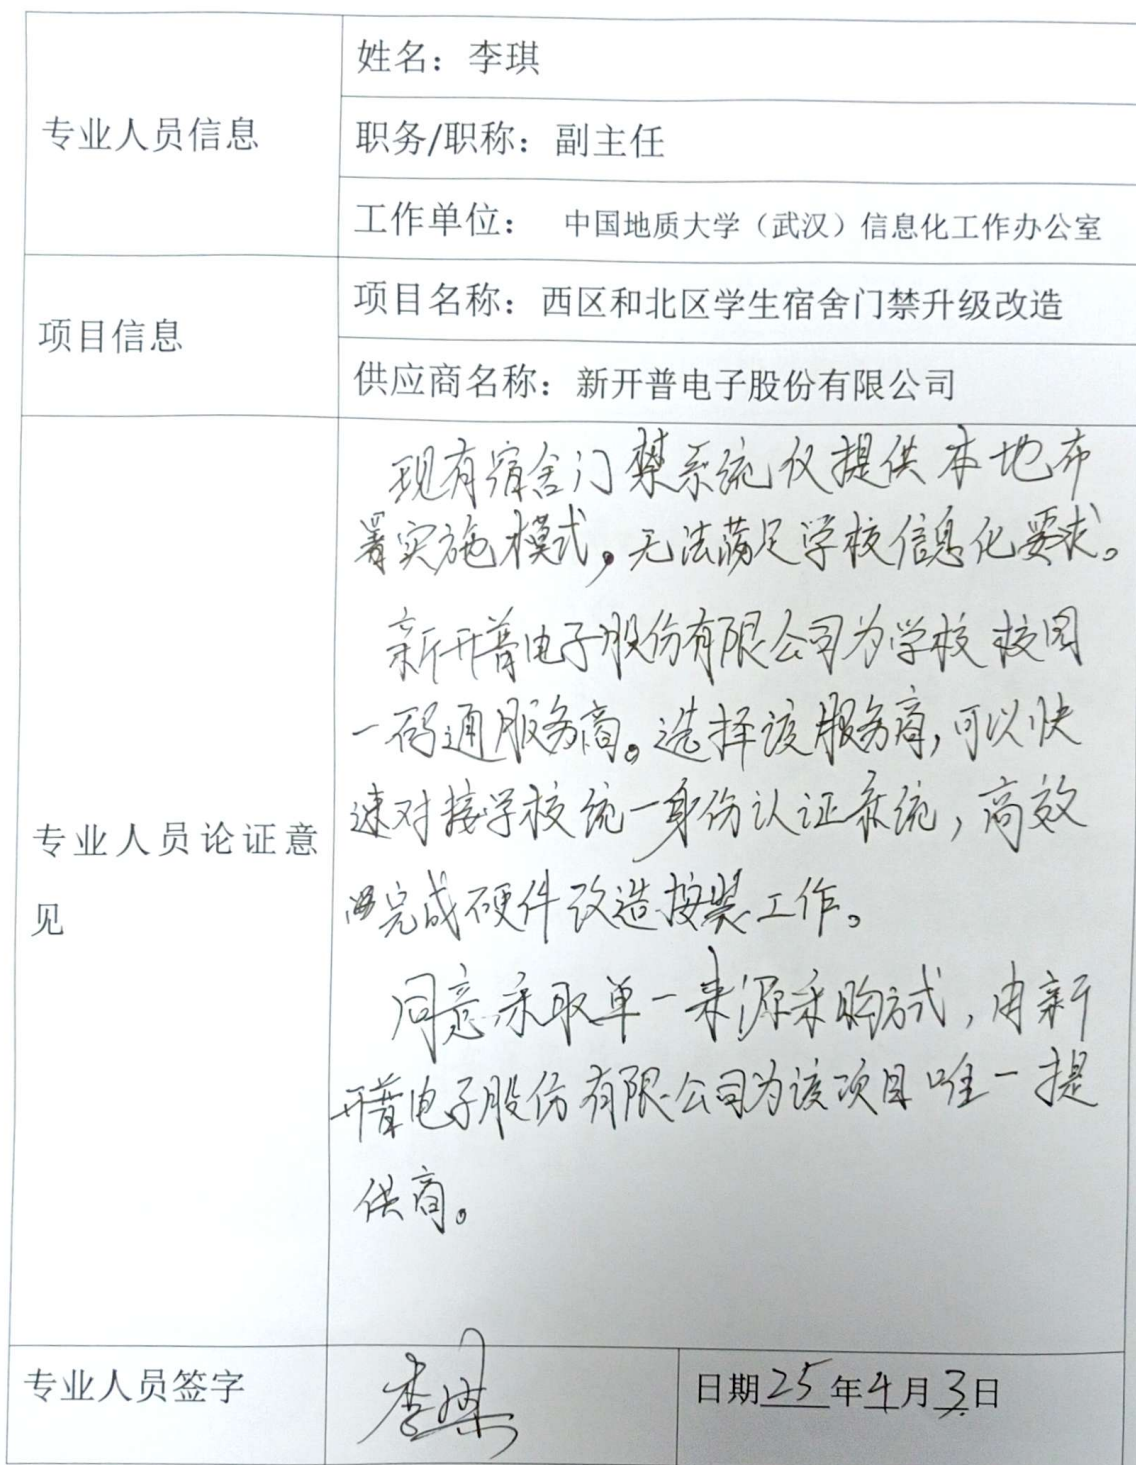 专业人员信息
姓名：李琪
职务/职称：副主任
工作单位： 中国地质大学（武汉）信息化工作办公室
项目信息
项目名称：西区和北区学生宿舍门禁升级改造
供应商名称：新开普电子股份有限公司
专业人员论证意
见
现有宿舍门禁系统仅提供本地布
署实施模式，无法满足学校信息化要求。
新开普电子股份有限公司为学校校园
一码通服务商。选择该服务商，可以快
速对接学校统一身份认证系统，高效
完成硬件改造按装工作。
同意采取单一来源采购方式，由新
开普电子股份有限公司为该项目唯一提
供商。
专业人员签字
李琪
日期25年4月3日